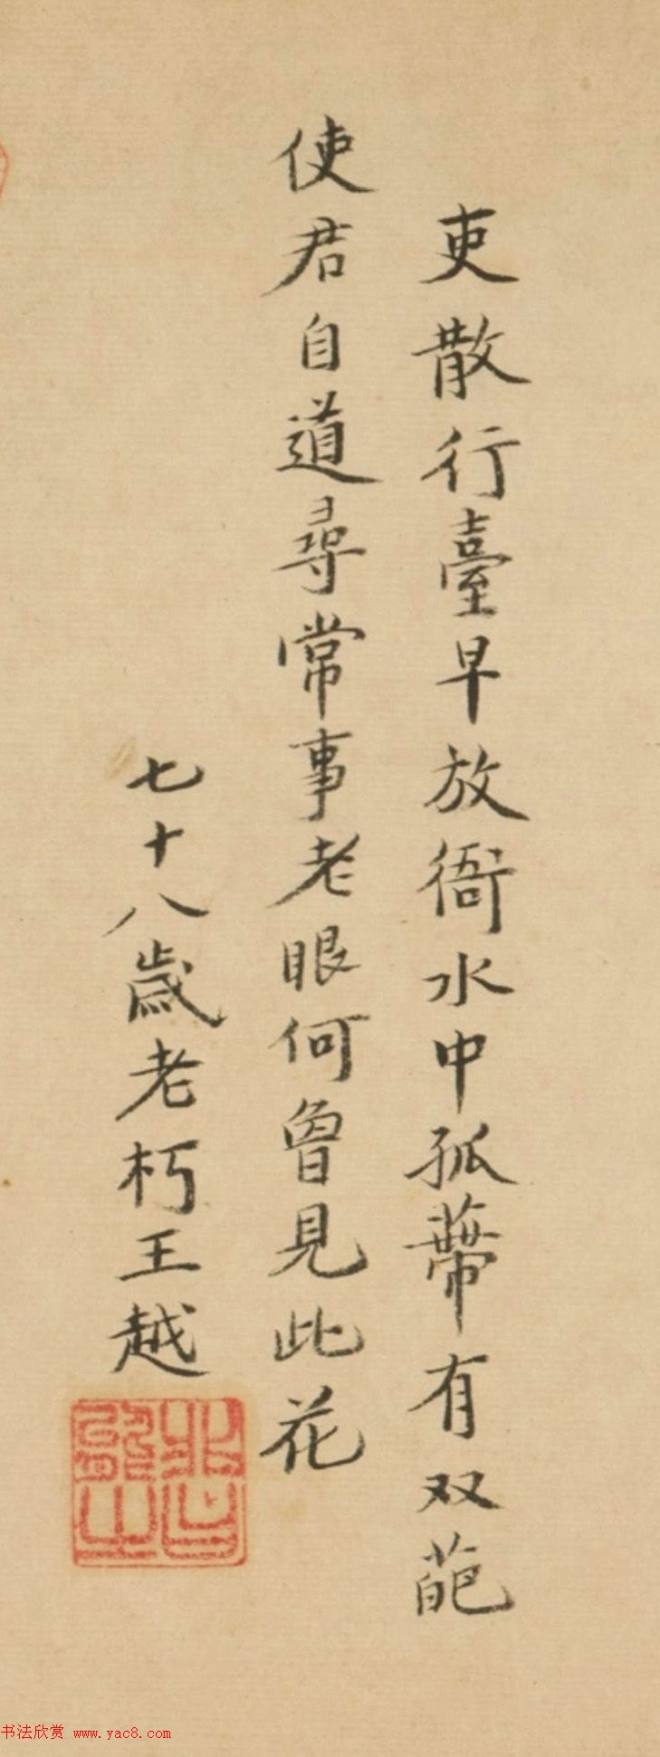 吏散行臺早放衙水中孤蔕有双葩
使君自道尋常事老眼何曾見此花
七十八歲老朽王越
书法欣赏 www.yac8.com